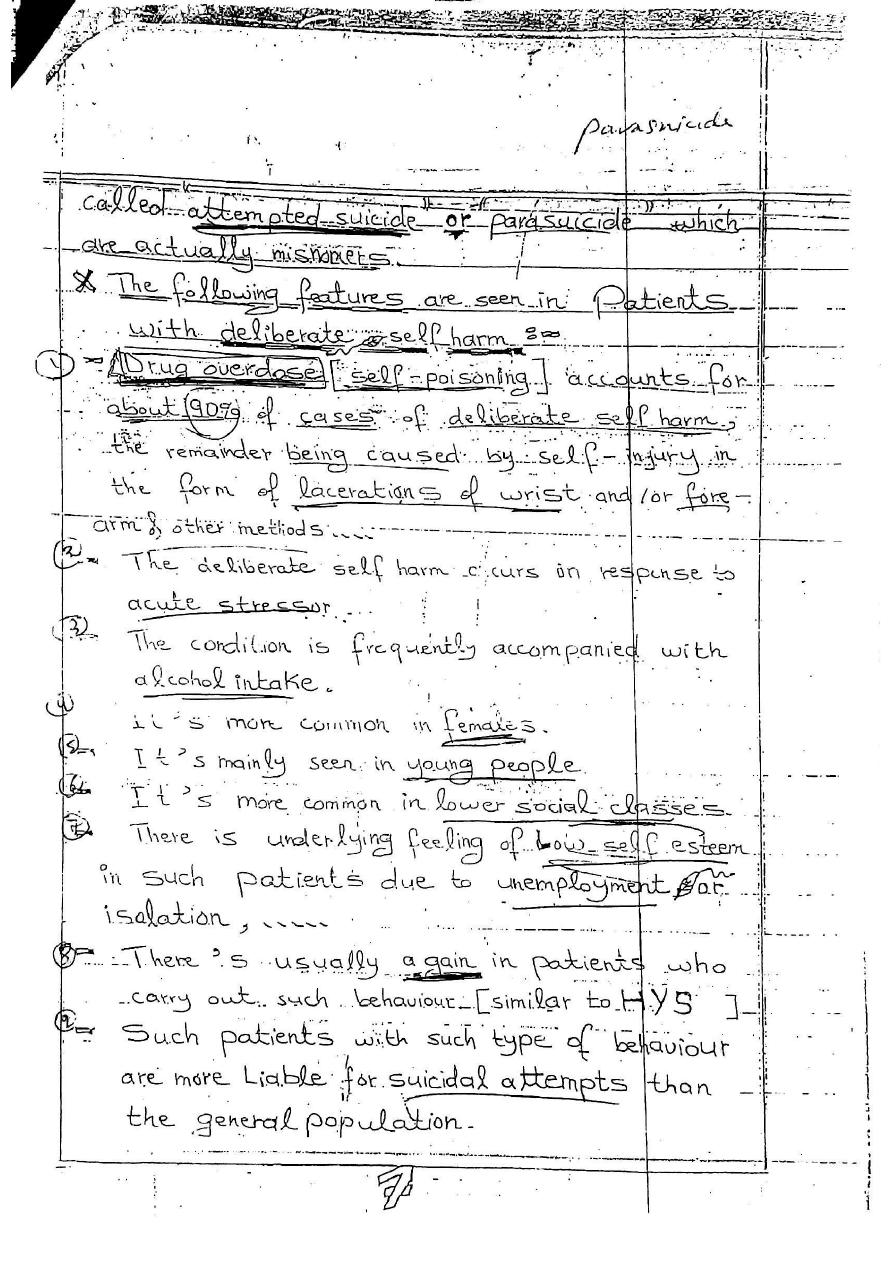 parasuicide
called "attempted suicide" or "parasuicide" which
are actually misnomers.
* The following features are seen in Patients
with deliberate self harm :-
1- Drug overdose [self-poisoning] accounts for
about 90% of cases of deliberate self harm,
the remainder being caused by self-injury in
the form of lacerations of wrist and /or fore-
arm & other methods ....
2- The deliberate self harm occurs in response to
acute stressor ...
3- The condition is frequently accompanied with
alcohol intake.
4 it's more common in females.
5-. It's mainly seen in young people
6- It's more common in lower social classes
7- There is underlying feeling of Low self esteem
in such patients due to unemployment or
isolation, .....
8- There's usually a gain in patients who
carry out such behaviour [similar to HYS ]
9- Such patients with such type of behaviour
are more Liable for suicidal attempts than
the general population.
7